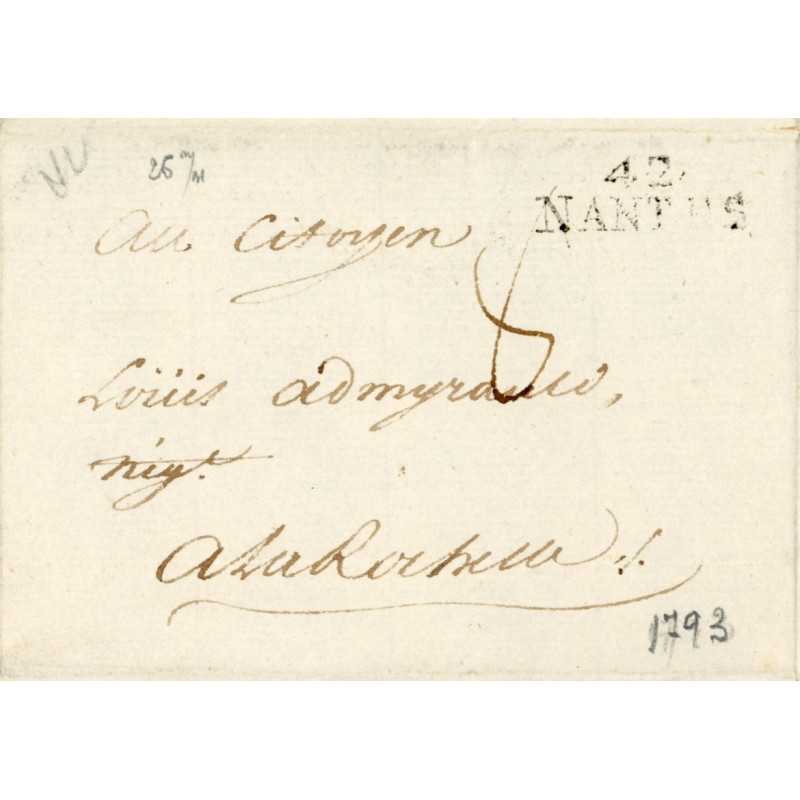 42
NANTES
26 m/m
Au Citoyen
8
Loüis admyrauld,
Négt.
A La Rochelle ./.
1793